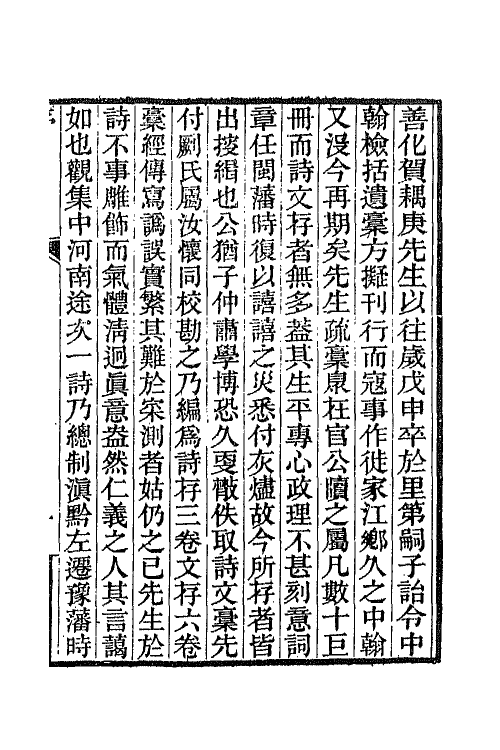 善化賀耦庚先生以往歲戊申卒於里第嗣子詒令中
翰檢括遺稾方擬刊行而寇事作徙家江鄉久之中翰
又沒今再期矣先生疏稾臮在官公牘之屬凡數十巨
冊而詩文存者無多葢其生平專心政理不甚刻意詞
章任閩藩時復以譆譆之災悉付灰燼故今所存者皆
出掇緝也公猶子仲肅學博恐久更散佚取詩文稾先
付劂氏屬汝懷同校勘之乃編爲詩存三卷文存六卷
稾經傳寫譌誤實繁其難於㝥測者姑仍之已先生於
詩不事雕飾而氣體淸迥眞意盎然仁義之人其言藹
如也觀集中河南途次一詩乃總制滇黔左遷豫藩時